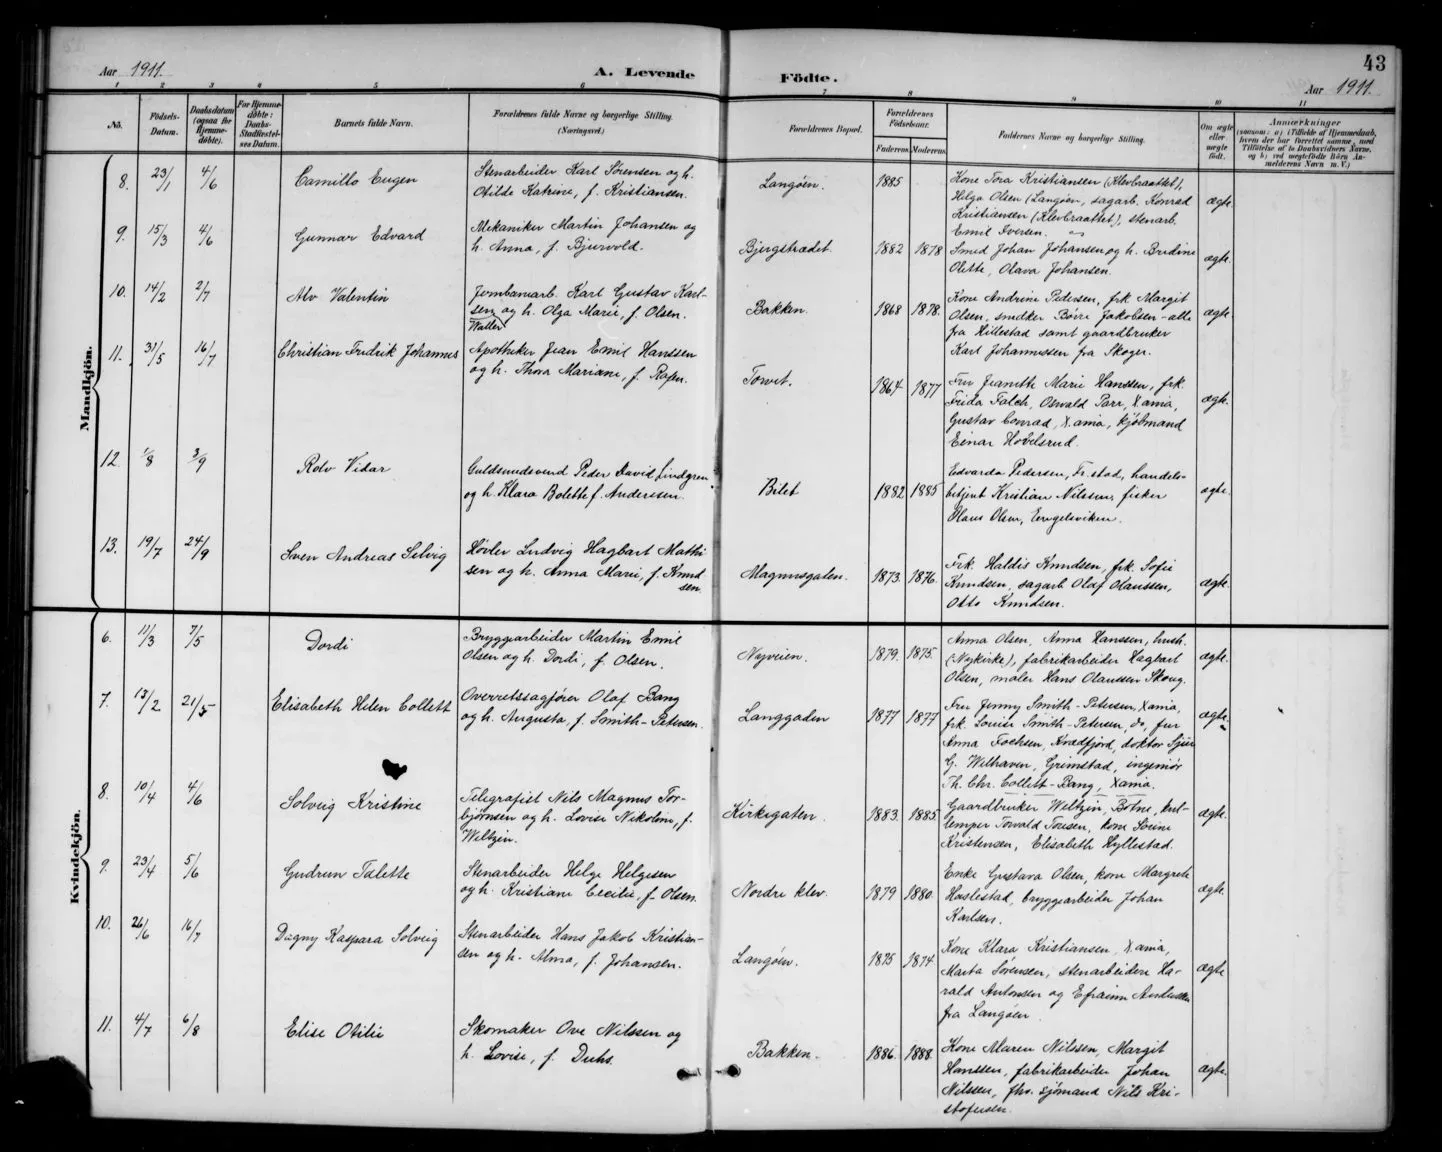 Aar 1911. A. Levende Födte. 43
Aar 1911.
1 2 3 4 5 6 7 8 9 10 11
No.
Födsels-Datum.
Daabsdatum (ogsaa for Hjemmedöbte).
For Hjemmedöbte: Daabs-Stadfæstelses Datum.
Barnets fulde Navn.
Forældrenes fulde Navne og borgerlige Stilling. (Næringsvei.)
Forældrenes Bopæl.
Forældrenes Födselsaar.
Faderens. Moderens.
Faddernes Navne og borgerlige Stilling.
Om ægte eller uægte födt.
Anmærkninger
Mandkjön.
8. 23/1 4/6 Camillo Eugen
Stenarbeider Karl Sörensen og h.
Otilde Katrine, f. Kristiansen.
Langöen. 1885
Kone Tora Kristiansen (Klevbraattet),
Helga Olsen (Langöen, sagarb. Konrad
Kristiansen (Klevbraattet), stenarb.
Emil Iversen.
ægte.
9. 15/3 4/6 Gunnar Edvard
Mekaniker Martin Johansen og
h. Anna, f. Bjuervold.
Bjergstrædet. 1882 1878
Smed Johan Johansen og h. Bredine
Olette, Olava Johansen.
ægte.
10. 14/2 2/7 Alv Valentin
Jernbanearb. Karl Gustav Karl-
sen og h. Olga Marie, f. Olsen.
Bakken. 1868 1878.
Kone Andrine Pedersen, frk. Margit
Olsen, snedker Börre Jakobsen - alle
fra Hillestad samt gaardbruker
Karl Johannessen fra Skoger.
ægte.
Walter
11. 31/5 16/7 Christian Fredrik Johannes
Apotheker Jean Emil Hanssen
og h. Thora Mariane, f. Rafen.
Torvet. 1864 1877
Fru Jeaneth Marie Hanssen, frk.
Frida Falch, Oswald Parr, X.ania,
Gustav Conrad, X.ania, kjöbmand
Einar Hovelsrud.
ægte.
12. 1/8 3/9 Rolv Vidar
Guldsmedsvend Peder David Lindgren
og h. Klara Bolette f. Andersen.
Bilet 1882 1885
Edvarda Pedersen, Fr.stad, handels-
betjent Kristian Nilssen, fisker
Olaus Olsen, Engelsviken.
ægte.
13. 19/7 24/9 Sven Andreas Selvig
Hövler Ludvig Hagbart Mathi-
sen og h. Anna Marie, f. Knud-
sen.
Magnusgaten. 1873. 1876.
Frk. Haldis Knudsen, frk. Sofie
Knudsen, sagarb. Olaf Olaussen,
Otto Knudsen.
ægte.
Kvindekjön.
6. 11/3 7/5 Dordi
Bryggearbeider Martin Emil
Olsen og h. Dordi, f. Olsen.
Nyveien. 1879. 1875.
Anna Olsen, Anna Hanssen, hush.
(Nykirke), fabrikarbeider Hagbart
Olsen, maler Hans Olaussen Skoug.
ægte.
7. 13/2 21/5 Elisabeth Helen Collett
Overretssagförer Olaf Bang
og h. Augusta, f. Smith-Petersen.
Langgaden 1877 1877
Fru Jenny Smith-Petersen, X.ania,
frk. Louise Smith-Petersen, do, fru
Anna Fochsen, Kvædfjord, doktor Sjur
G. Welhaven, Grimstad, ingeniör
Th. Chr. Collett-Bang, X.ania.
ægte.
8. 10/4 4/6 Solveig Kristine
Telegrafist Nils Magnus Tor-
björnsen og h. Lovise Nikoline, f.
Weltzin.
Kirkegaten. 1883. 1885.
Gaardbruker Weltzin, Botne,
Torvald Tousen, kone Sörine
Kristensen, Elisabeth Hyllestad.
ægte.
9. 23/4 5/6 Gudrun Talette
Stenarbeider Helge Helgesen
og h. Kristiane Cecilie, f. Olsen.
Nordre klev. 1879 1880.
Enke Gustava Olsen, kone Margrete
Haslestad, bryggearbeider Johan
Karlsen.
ægte.
10. 26/6 16/7 Dagny Kaspara Solveig
Stenarbeider Hans Jakob Kristian-
sen og h. Alma, f. Johansen.
Langöen. 1875 1874.
Kone Klara Kristiansen X.ania,
Marta Sörensen, stenarbeidere Ha-
rald Antonsen og Efraim Andersen
fra Langöen.
ægte.
11. 4/7 6/8 Elise Otilie
Skomaker Ove Nilssen og
h. Lovise, f. Duhs.
Bakken. 1886. 1888.
Kone Maren Nilssen, Margit
Hanssen, fabrikarbeider Johan
Nilssen, fhv. sjömand Nils Kri-
stofersen.
ægte.